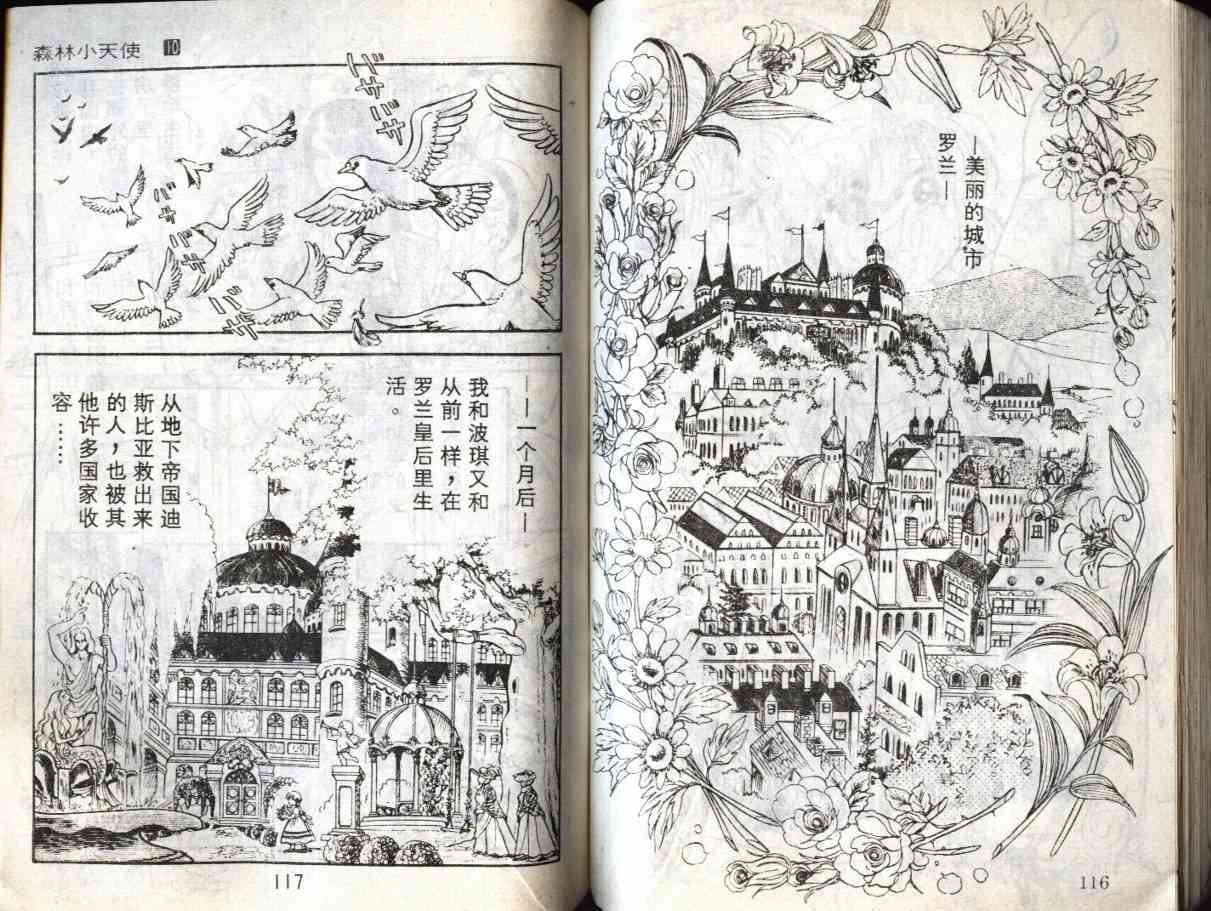 —美丽的城市
罗兰—
116
森林小天使 10
ニャャニャ
バサ
バサ
バサ
——一个月后—
我和波琪又和
从前一样，在
罗兰皇后里生
活。
从地下帝国迪
斯比亚救出来
的人，也被其
他许多国家收
容……
117